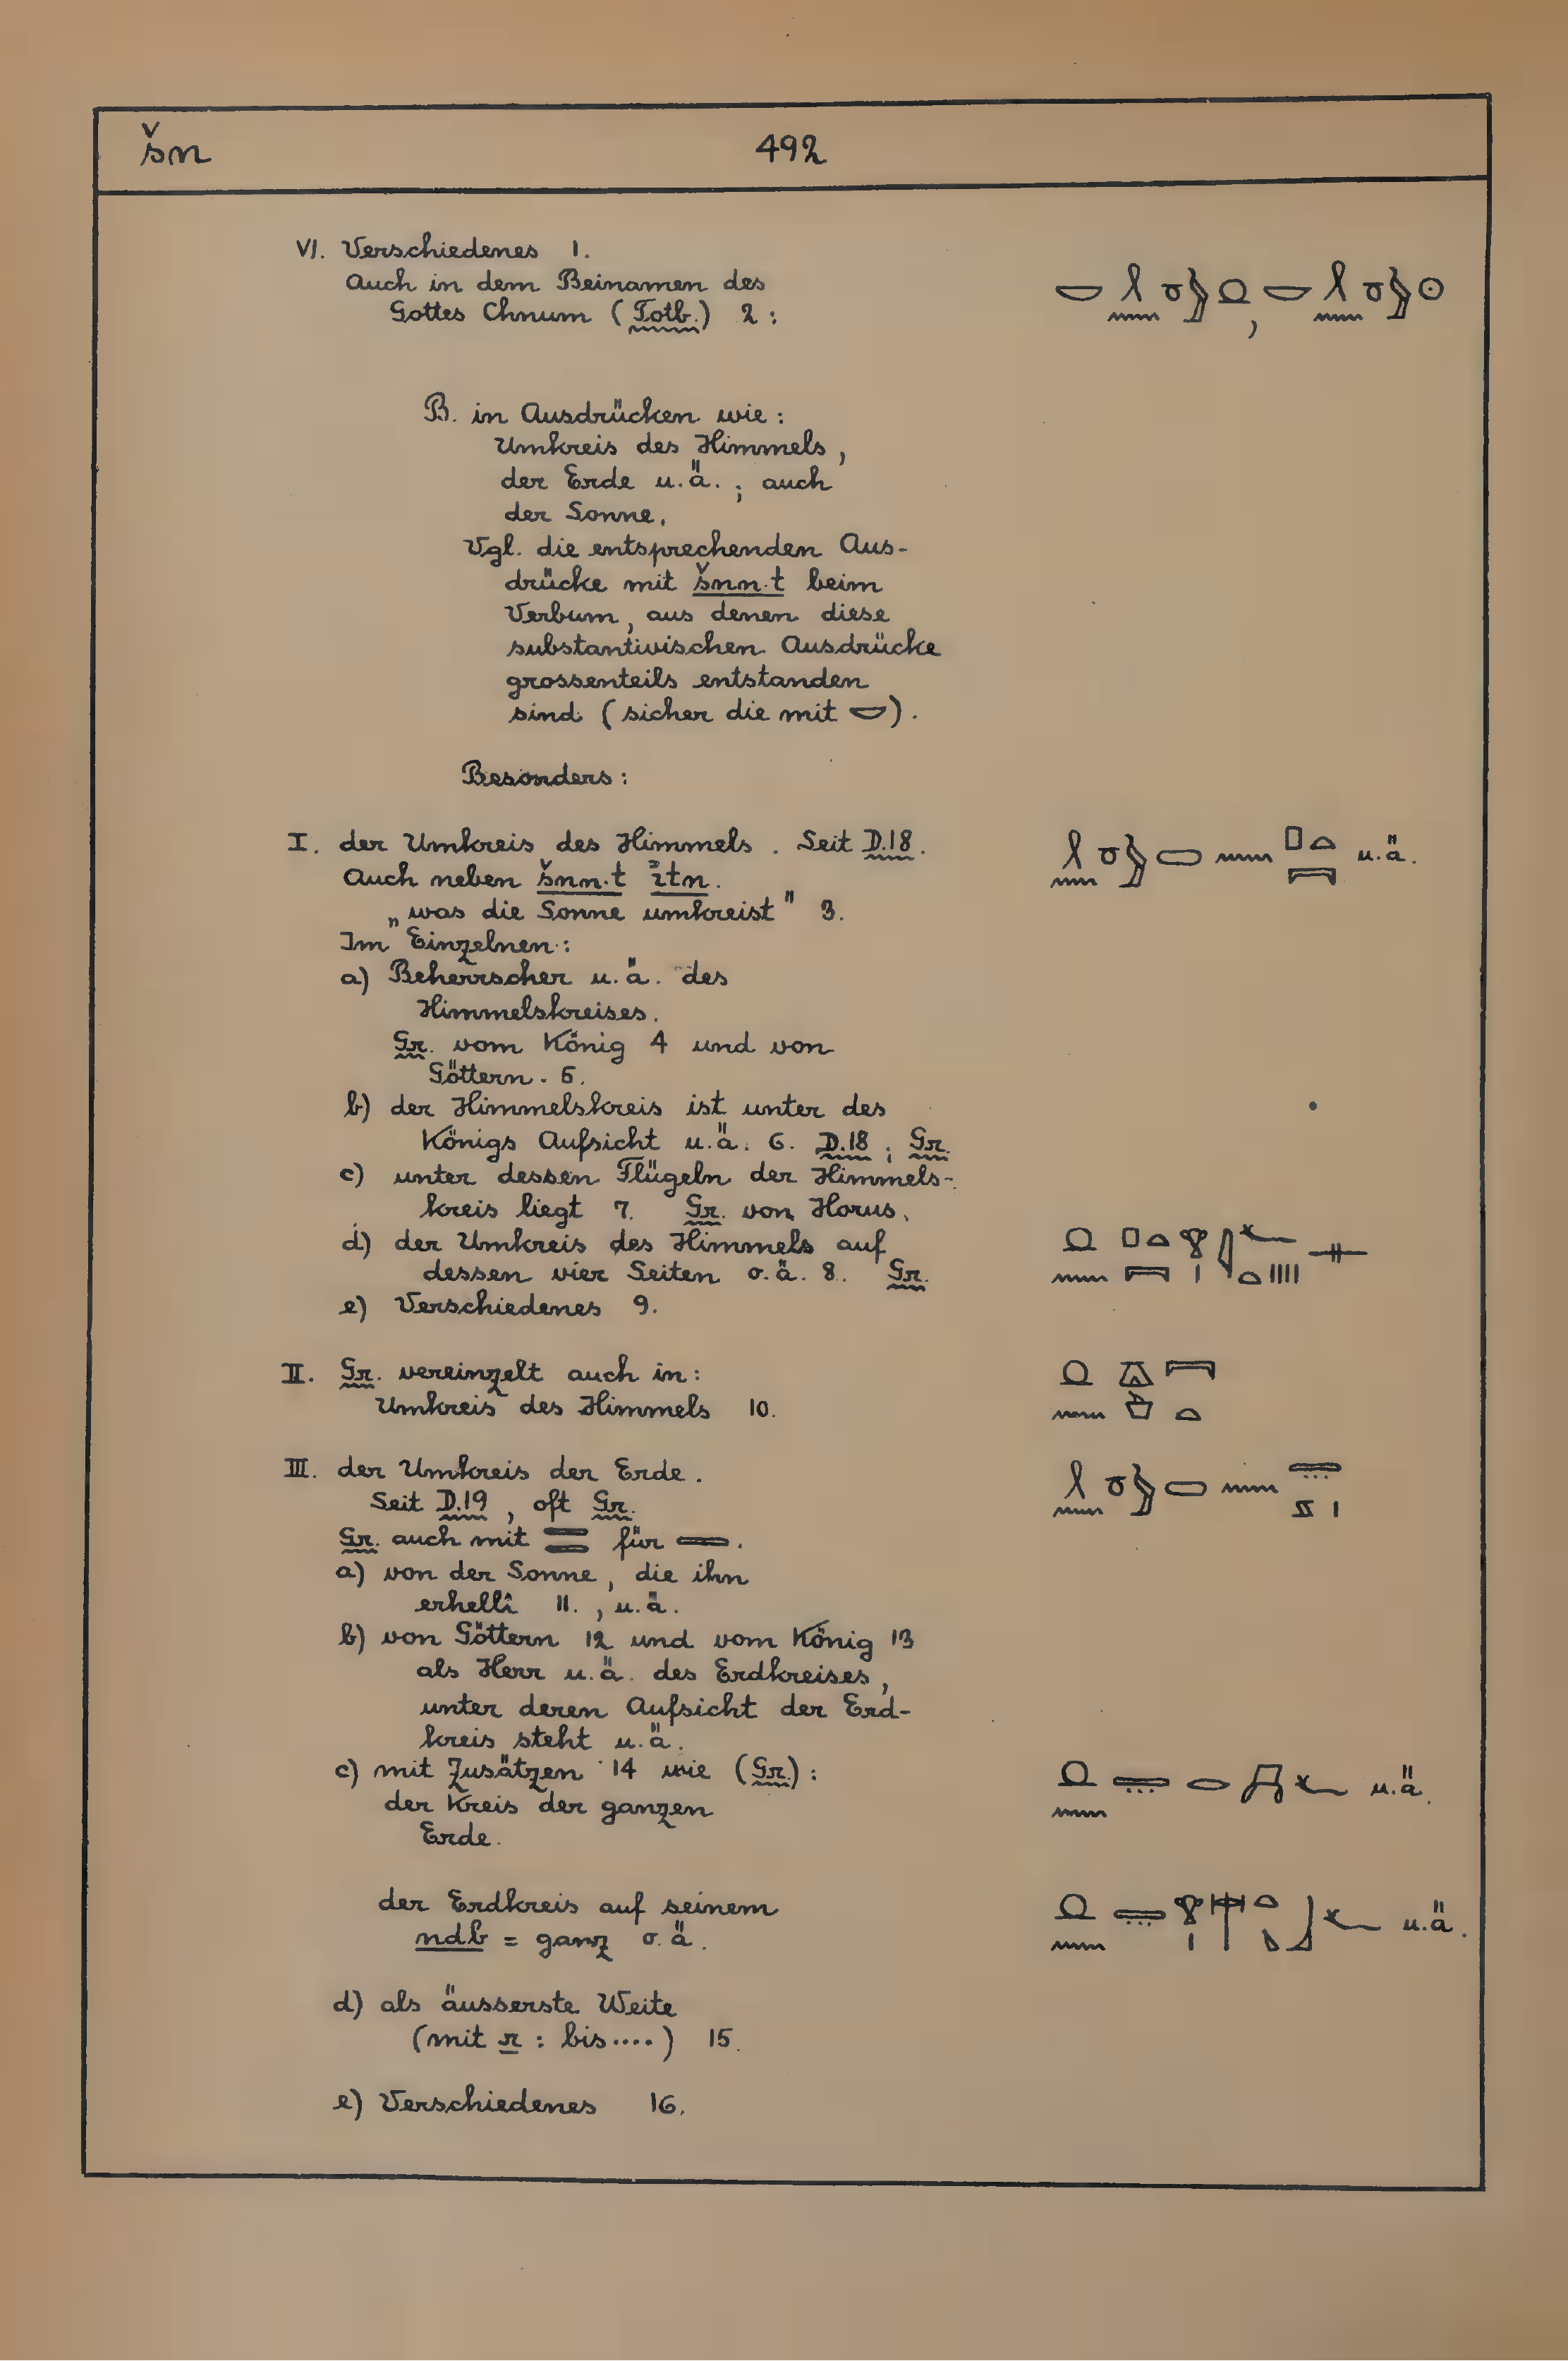 šn 492
VI. Verschiedenes 1.
Auch in dem Beinamen des
Gottes Chnum (Totb.) 2 :
B. in Ausdrücken wie :
Umkreis des Himmels,
der Erde u.ä. ; auch
der Sonne.
Vgl. die entsprechenden Aus-
drücke mit šnn.t beim
Verbum, aus denen diese
substantivischen Ausdrücke
grossenteils entstanden
sind (sicher die mit 𓎟).
Besonders :
I. der Umkreis des Himmels. Seit D.18. u.ä.
Auch neben šnn.t ỉtn.
„was die Sonne umkreist" 3.
Im Einzelnen :
a) Beherrscher u.ä. des
Himmelskreises.
Gr. vom König 4 und von
Göttern. 5.
b) der Himmelskreis ist unter des
Königs Aufsicht u.ä. 6. D.18 ; Gr.
c) unter dessen Flügeln der Himmels-
kreis liegt 7. Gr. von Horus.
d) der Umkreis des Himmels auf
dessen vier Seiten o.ä. 8. Gr.
e) Verschiedenes 9.
II. Gr. vereinzelt auch in :
Umkreis des Himmels 10.
III. der Umkreis der Erde.
Seit D.19, oft Gr.
Gr. auch mit 𓇿𓇿 für 𓇿.
a) von der Sonne, die ihn
erhellt 11. , u.ä.
b) von Göttern 12 und vom König 13
als Herr u.ä. des Erdkreises,
unter deren Aufsicht der Erd-
kreis steht u.ä.
c) mit Zusätzen 14 wie (Gr.) : u.ä.
der Kreis der ganzen
Erde.
der Erdkreis auf seinem u.ä.
ndb = ganz o.ä.
d) als äusserste Weite
(mit r : bis ....) 15.
e) Verschiedenes 16.